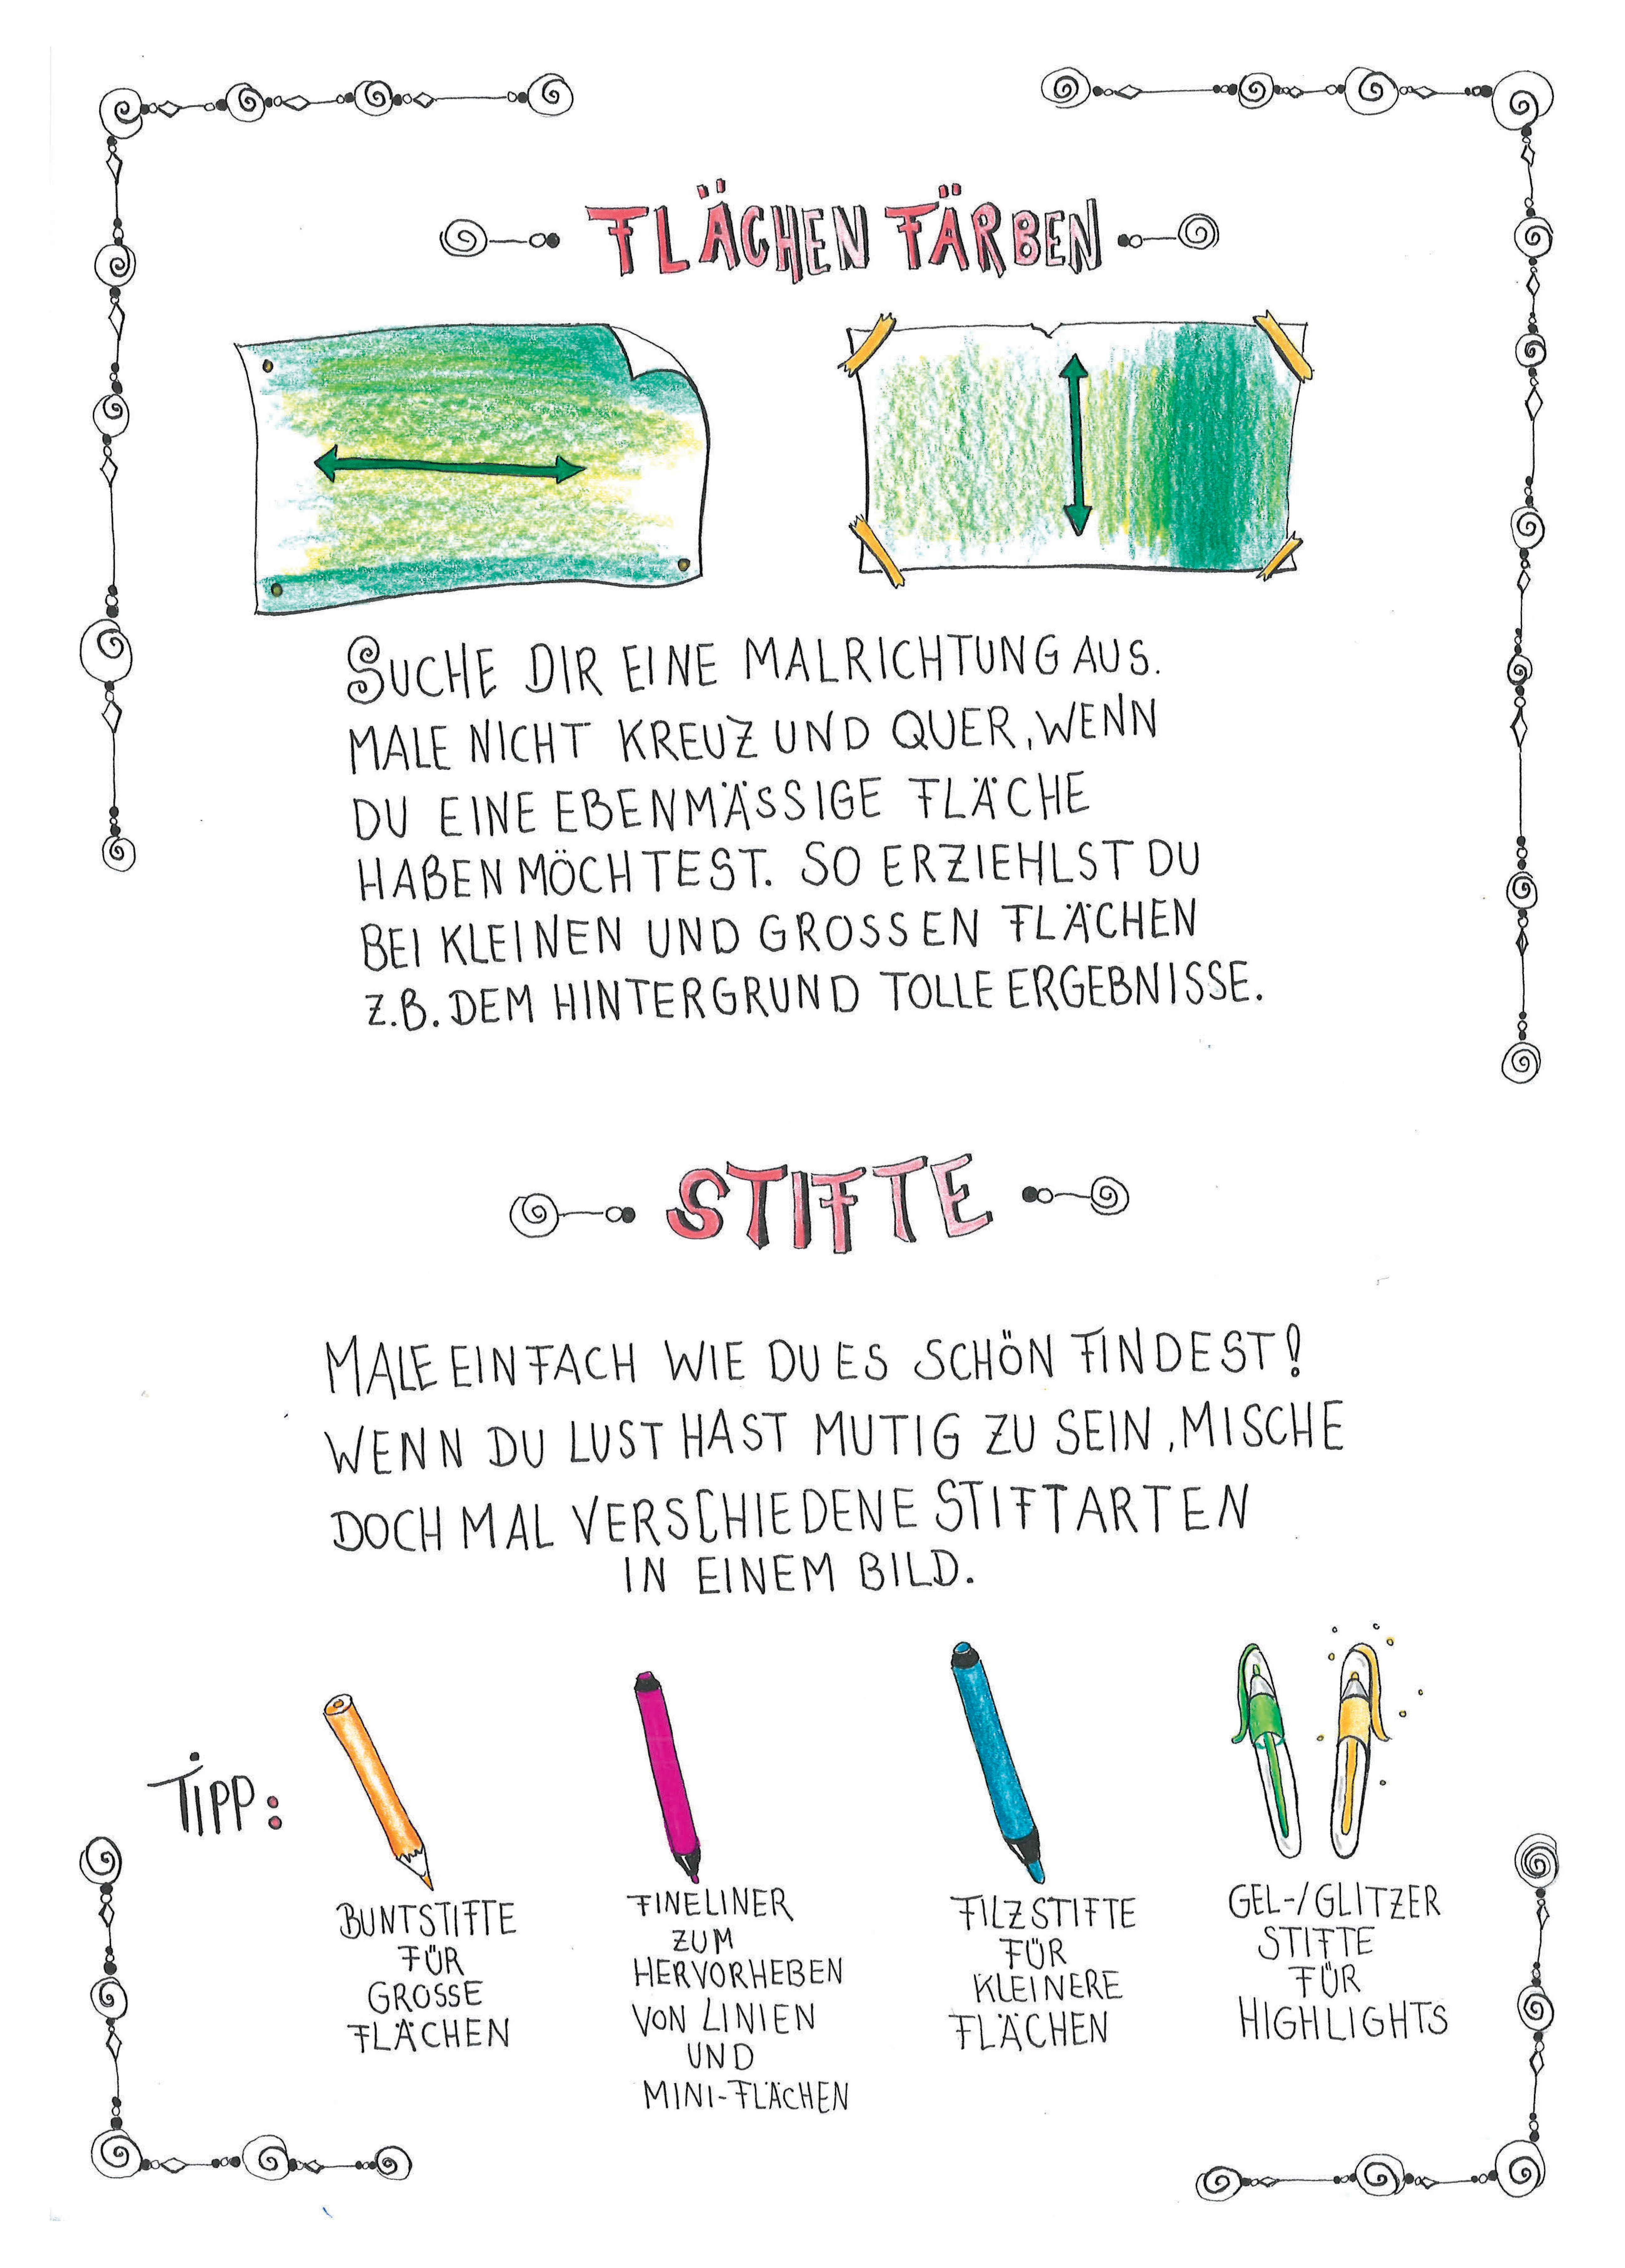 FLÄCHEN FÄRBEN
SUCHE DIR EINE MALRICHTUNG AUS.
MALE NICHT KREUZ UND QUER, WENN
DU EINE EBENMÄSSIGE FLÄCHE
HABEN MÖCHTEST. SO ERZIEHLST DU
BEI KLEINEN UND GROSSEN FLÄCHEN
Z.B. DEM HINTERGRUND TOLLE ERGEBNISSE.
STIFTE
MALE EINFACH WIE DU ES SCHÖN FINDEST!
WENN DU LUST HAST MUTIG ZU SEIN, MISCHE
DOCH MAL VERSCHIEDENE STIFTARTEN
IN EINEM BILD.
TIPP:
BUNTSTIFTE
FÜR
GROSSE
FLÄCHEN
FINELINER
ZUM
HERVORHEBEN
VON LINIEN
UND
MINI-FLÄCHEN
FILZSTIFTE
FÜR
KLEINERE
FLÄCHEN
GEL-/GLITZER
STIFTE
FÜR
HIGHLIGHTS